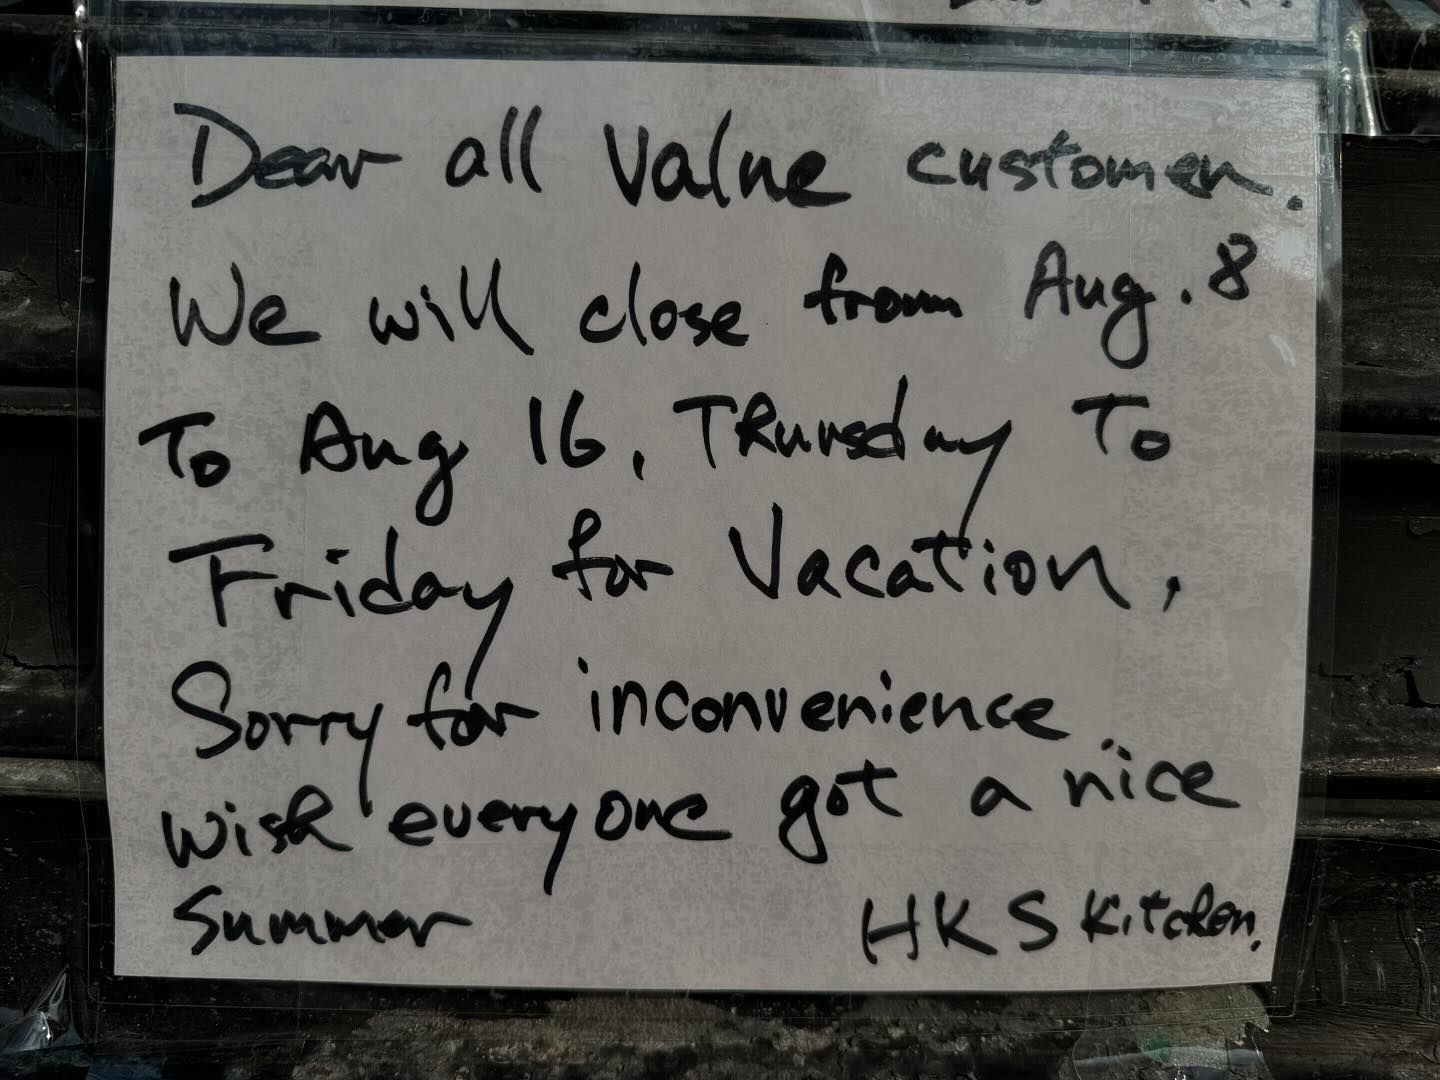 Dear all Value customer.
We will close from Aug. 8
To Aug 16, Thursday To
Friday for Vacation,
Sorry for inconvenience
wish everyone got a nice
Summer HKS Kitchen.